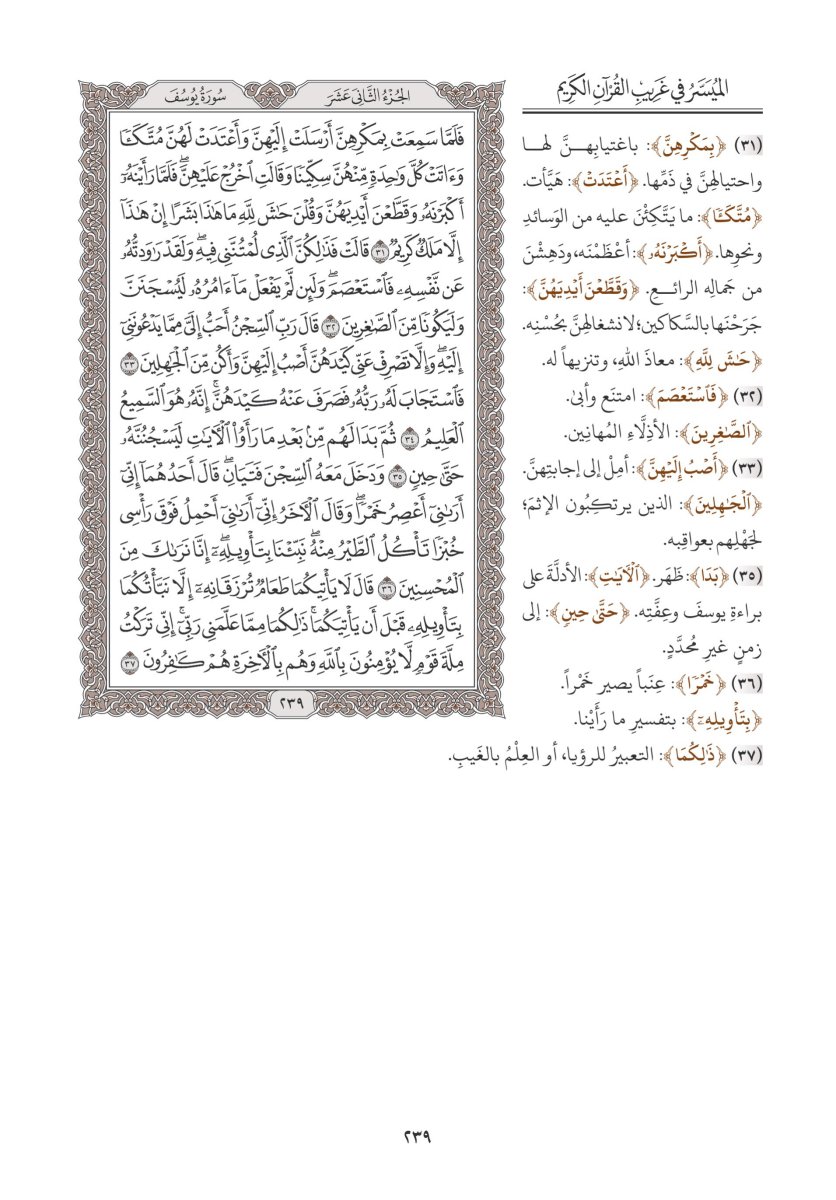 الميُسَّرُ في غَرِيبِ القُرْآنِ الكَرِيمِ
(٣١) ﴿بِمَكْرِهِنَّ﴾: باغتيابِهنَّ لها
واحتيالهنَّ في ذَمِّها. ﴿أَعْتَدَتْ﴾: هَيَّأت.
﴿مُتَّكَـًٔا﴾: ما يَتَّكِئْنَ عليه من الوَسائدِ
ونحوِها. ﴿أَكْبَرْنَهُۥ﴾: أعظَمْنَه، ودَهِشْنَ
من جَمالِه الرائـعِ. ﴿وَقَطَّعْنَ أَيْدِيَهُنَّ﴾:
جَرَحْنَها بالسَّكاكين؛ لانشغالهنَّ بحُسْنِه.
﴿حَٰشَ لِلَّهِ﴾: معاذَ اللهِ، وتنزيهاً له.
(٣٢) ﴿فَٱسْتَعْصَمَ﴾: امتنَع وأبىٰ.
﴿ٱلصَّٰغِرِينَ﴾: الأذِلَّاءِ المُهانِين.
(٣٣) ﴿أَصْبُ إِلَيْهِنَّ﴾: أمِلْ إلى إجابتِهنَّ.
﴿ٱلْجَٰهِلِينَ﴾: الذين يرتكِبُون الإثمَ؛
لجَهْلِهم بعواقِبِه.
(٣٥) ﴿بَدَا﴾: ظَهَر. ﴿ٱلْأٓيَٰتِ﴾: الأدلَّةَ على
براءةِ يوسفَ وعِفَّتِه. ﴿حَتَّىٰ حِينٍ﴾: إلى
زمنٍ غيرِ مُحدَّدٍ.
(٣٦) ﴿خَمْرًا﴾: عِنَباً يصير خَمْراً.
﴿بِتَأْوِيلِهِۦٓ﴾: بتفسيرِ ما رَأَيْنا.
(٣٧) ﴿ذَٰلِكُمَا﴾: التعبيرُ للرؤيا، أو العِلْمُ بالغَيبِ.
الجُزْءُ الثَّانِي عَشَرَ
سُورَةُ يُوسُفَ
فَلَمَّا سَمِعَتْ بِمَكْرِهِنَّ أَرْسَلَتْ إِلَيْهِنَّ وَأَعْتَدَتْ لَهُنَّ مُتَّكَـًٔا
وَءَاتَتْ كُلَّ وَٰحِدَةٍ مِّنْهُنَّ سِكِّينًا وَقَالَتِ ٱخْرُجْ عَلَيْهِنَّۖ فَلَمَّا رَأَيْنَهُۥٓ
أَكْبَرْنَهُۥ وَقَطَّعْنَ أَيْدِيَهُنَّ وَقُلْنَ حَٰشَ لِلَّهِ مَا هَٰذَا بَشَرًا إِنْ هَٰذَآ
إِلَّا مَلَكٌ كَرِيمٌ ٣١ قَالَتْ فَذَٰلِكُنَّ ٱلَّذِى لُمْتُنَّنِى فِيهِۖ وَلَقَدْ رَٰوَدتُّهُۥ
عَن نَّفْسِهِۦ فَٱسْتَعْصَمَۖ وَلَئِن لَّمْ يَفْعَلْ مَآ ءَامُرُهُۥ لَيُسْجَنَنَّ
وَلَيَكُونًا مِّنَ ٱلصَّٰغِرِينَ ٣٢ قَالَ رَبِّ ٱلسِّجْنُ أَحَبُّ إِلَىَّ مِمَّا يَدْعُونَنِىٓ
إِلَيْهِۖ وَإِلَّا تَصْرِفْ عَنِّى كَيْدَهُنَّ أَصْبُ إِلَيْهِنَّ وَأَكُن مِّنَ ٱلْجَٰهِلِينَ ٣٣
فَٱسْتَجَابَ لَهُۥ رَبُّهُۥ فَصَرَفَ عَنْهُ كَيْدَهُنَّۚ إِنَّهُۥ هُوَ ٱلسَّمِيعُ
ٱلْعَلِيمُ ٣٤ ثُمَّ بَدَا لَهُم مِّنۢ بَعْدِ مَا رَأَوُا۟ ٱلْأٓيَٰتِ لَيَسْجُنُنَّهُۥ
حَتَّىٰ حِينٍ ٣٥ وَدَخَلَ مَعَهُ ٱلسِّجْنَ فَتَيَانِۖ قَالَ أَحَدُهُمَآ إِنِّىٓ
أَرَىٰنِىٓ أَعْصِرُ خَمْرًاۖ وَقَالَ ٱلْأٓخَرُ إِنِّىٓ أَرَىٰنِىٓ أَحْمِلُ فَوْقَ رَأْسِى
خُبْزًا تَأْكُلُ ٱلطَّيْرُ مِنْهُۖ نَبِّئْنَا بِتَأْوِيلِهِۦٓۖ إِنَّا نَرَىٰكَ مِنَ
ٱلْمُحْسِنِينَ ٣٦ قَالَ لَا يَأْتِيكُمَا طَعَامٌ تُرْزَقَانِهِۦٓ إِلَّا نَبَّأْتُكُمَا
بِتَأْوِيلِهِۦ قَبْلَ أَن يَأْتِيَكُمَاۚ ذَٰلِكُمَا مِمَّا عَلَّمَنِى رَبِّىٓۚ إِنِّى تَرَكْتُ
مِلَّةَ قَوْمٍ لَّا يُؤْمِنُونَ بِٱللَّهِ وَهُم بِٱلْأٓخِرَةِ هُمْ كَٰفِرُونَ ٣٧
٢٣٩
٢٣٩